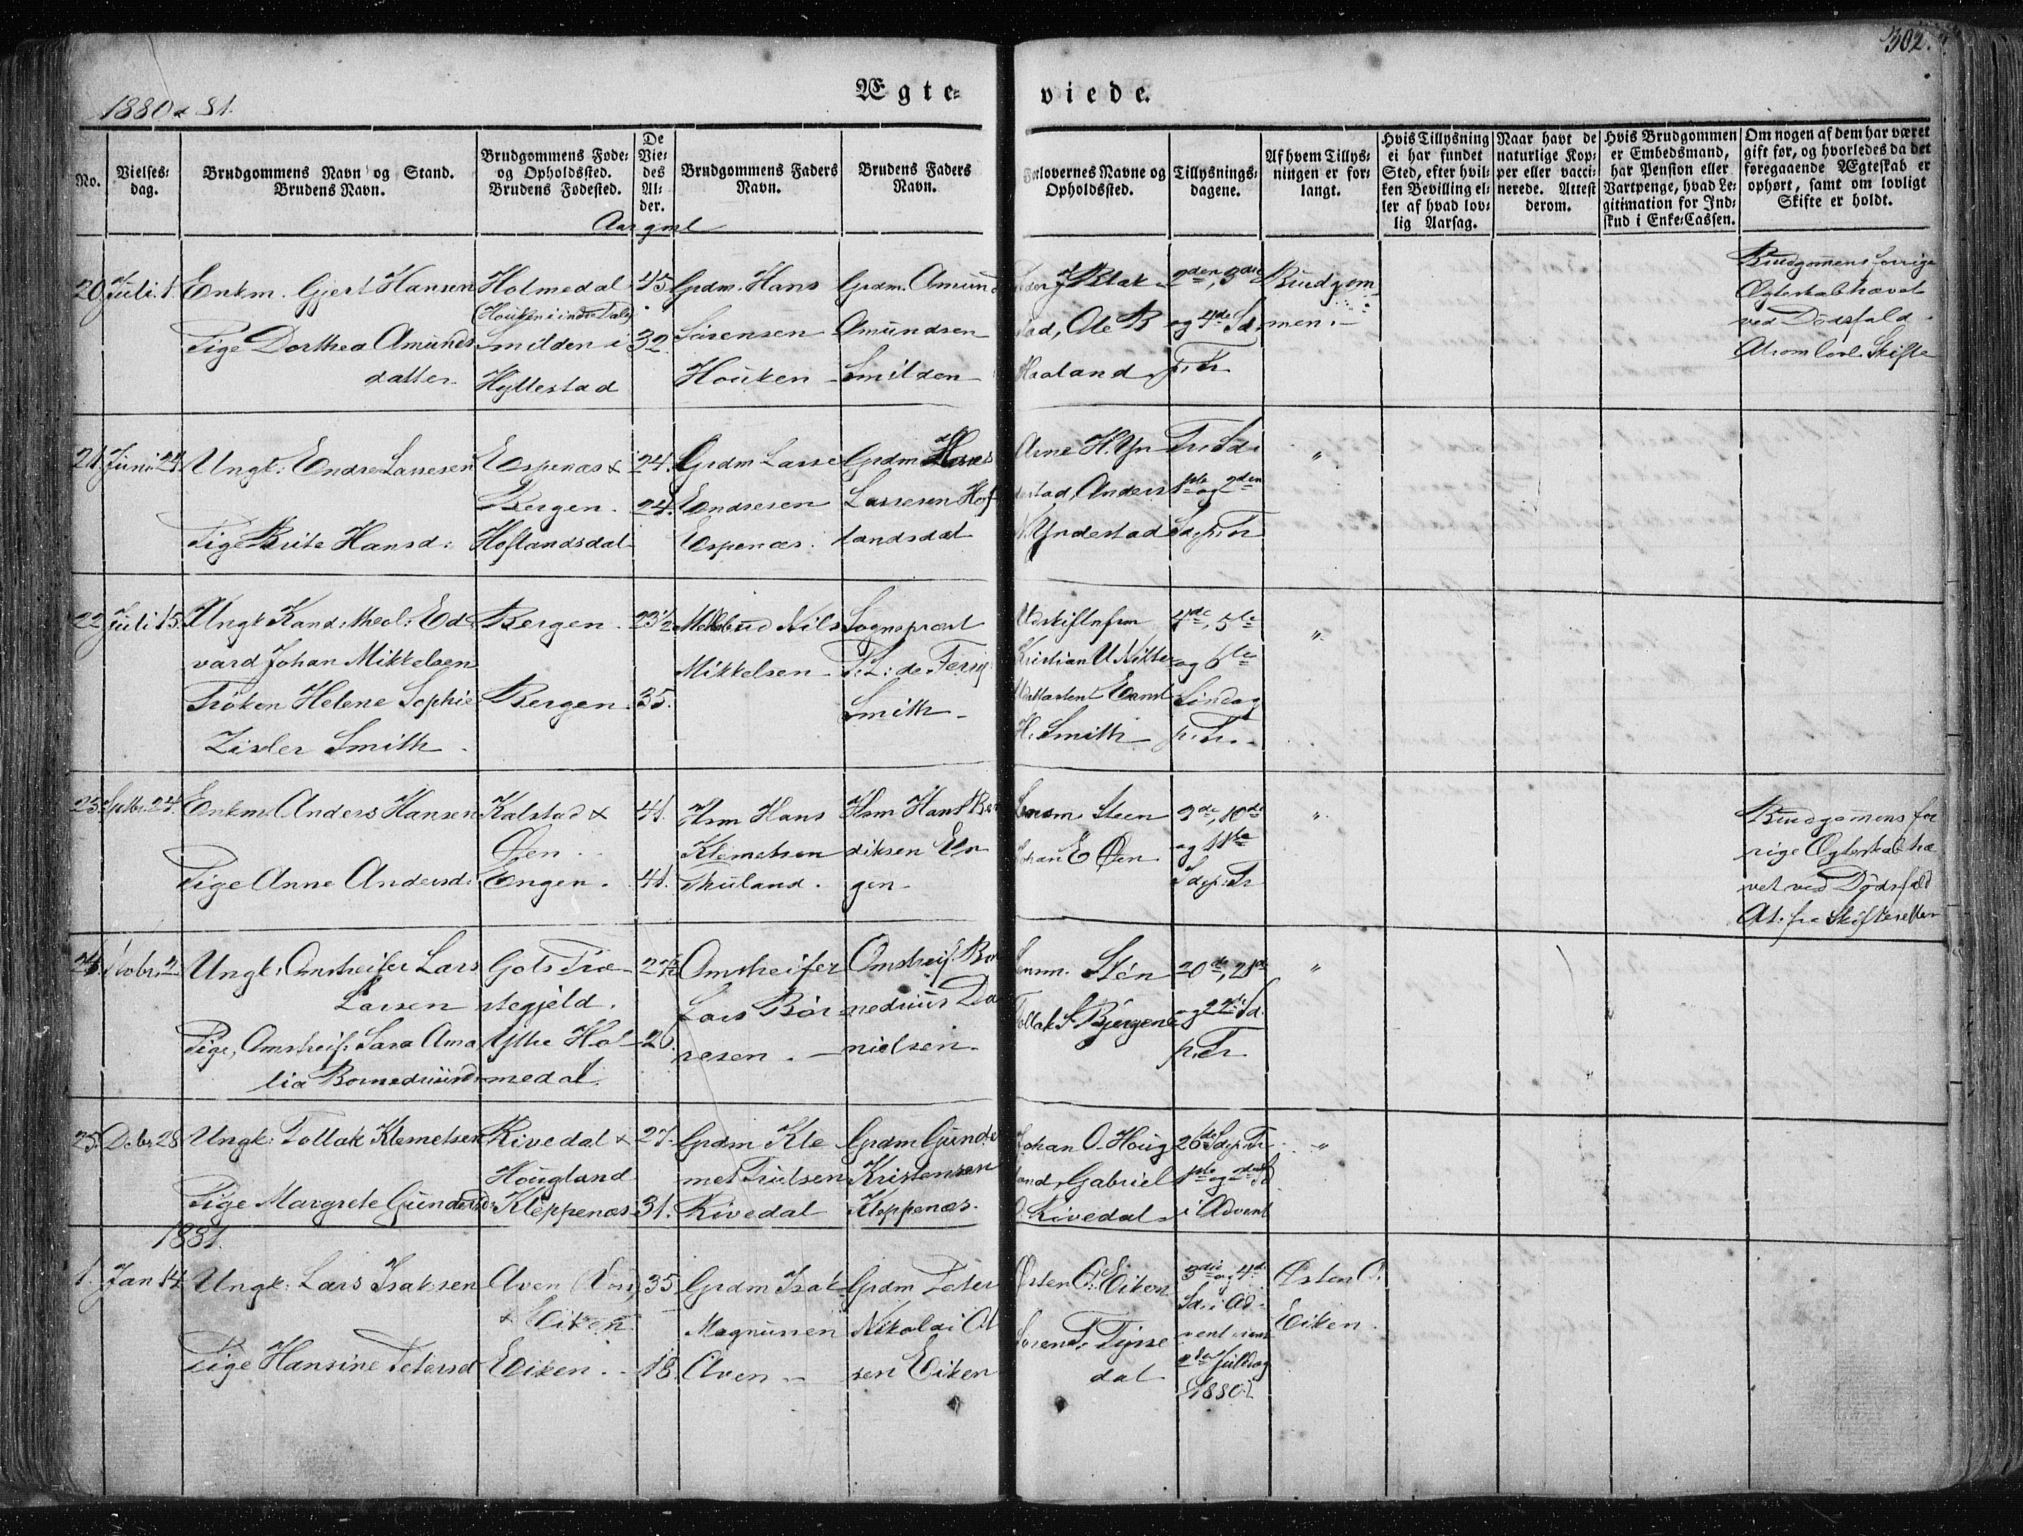 302.
1880 & 81.
Ægte-
viede.
No.
Vielses-
dag.
Brudgommens Navn og Stand.
Brudens Navn.
Brudgommens Føde-
og Opholdssted.
Brudens Fødested.
De
Vie-
des
Al-
der.
Brudgommens Faders
Navn.
Brudens Faders
Navn.
Forlovernes Navne og
Opholdssted.
Tillysnings-
dagene.
Af hvem Tillys-
ningen er for-
langt.
Hvis Tillysning
ei har fundet
Sted, efter hvil-
ken Bevilling el-
ler af hvad lov-
lig Aarsag.
Naar havt de
naturlige Kop-
per eller vacci-
nerede. Attest
derom.
Hvis Brudgommen
er Embedsmand,
har Pension eller
Vartpenge, hvad Le-
gitimation for Ind-
skud i Enke-Cassen.
Om nogen af dem har været
gift før, og hvorledes da det
foregaaende Ægteskab er
ophørt, samt om lovligt
Skifte er holdt.
20 Juli 1.
Enkm. Gjert Hansen
Pige Dorthea Amunds
datter
Holmedal
Smilden i
Hyllestad
45
32
Grdm. Hans
Sørensen
Houken
Grdm. Amund
Amundsen
Smilden
stad, Ole B
Haaland
2den, 3die
og 4de Sd
p. Tr
Brudgom-
men.
Brudgommens forrige
Ægteskab hævet
ved Dødsfald.
At. om lovl. Skifte
21. Juni 24
Ungk: Endre Larsesen
Pige Brite Hansd:
Espenæs &
Bergen.
Hoflandsdal
24.
24.
Grdm Larse
Endresen
Espenæs.
Grdm Hans
Larsesen Hof
landsdal
Arne H. Yn
destad, Anders
N. Yndestad
Tr: Sd:
1ste og 2den
Sd. p. Tr
"
22 Juli 15.
Ungk Kand: theol: Ed
vard Johan Mikkelsen
Frøken Helene Sophie
Zisler Smith
Bergen.
Bergen.
23½
35.
Nils
Mikkelsen
Sognepræst
Smith
Kristian
Ernst
H. Smith
4de, 5te
og 6te
Søndag
p. Tr.
"
23. Septbr. 24.
Enkm. Anders Hansen
Pige Anne Andersd:
Kalstad &
Øen
Engen.
41.
41.
Hsm Hans
Klemetsen
Thuland.
Hsm Hans
diksen En
gen
Lensm. Steen
Johan E Øen
9de, 10de
og 11te
Sd. p. Tr
"
Brudgommens for
rige Ægteskab hæ
vet ved Dødsfald
At. fra Skifteretten
24. Novbr. 2.
Ungk: Omstreifer Lars
Larsen
Pige, Omstreif: Sara Ama
lia Bornedriusd
Gols Præ-
stegjeld.
Ytre Hol-
medal.
27½
26.
Omstreifer
Lars Bør
resen.
Omstreif. Bor
nedrius Da
nielsen.
Lensm. Stén
Tollak S. Bjergene
20de, 21de
og 22de Sd.
p. Tr
"
25. Debr 28
Ungk: Tollak Klemetsen
Pige Margrete Gundersd:
Rivedal &
Hougland
Kleppenæs
27.
31.
Grdm Kle
met Trulsen
Rivedal
Grdm Gunde
Kristensen
Kleppenæs.
Johan O. Houg
land, Gabriel
O. Rivedal
26de Sd. p. Tr
1ste og 2den Sd
i Advent
"
1881.
1. Jan 14.
Ungk: Lars Isaksen
Pige Hansine Petersd
Aven (Vos)
& Eiken
Eiken.
35
18.
Grdm Isak
Magnussen
Aven
Grdm Peter
Nikolai Ol
sen Eiken
Østen O. Eiken
Søren T. Tysse
dal
3die og 4de
Sd. i Ad-
vent
2den Juledag
1880.
Østen O.
Eiken.